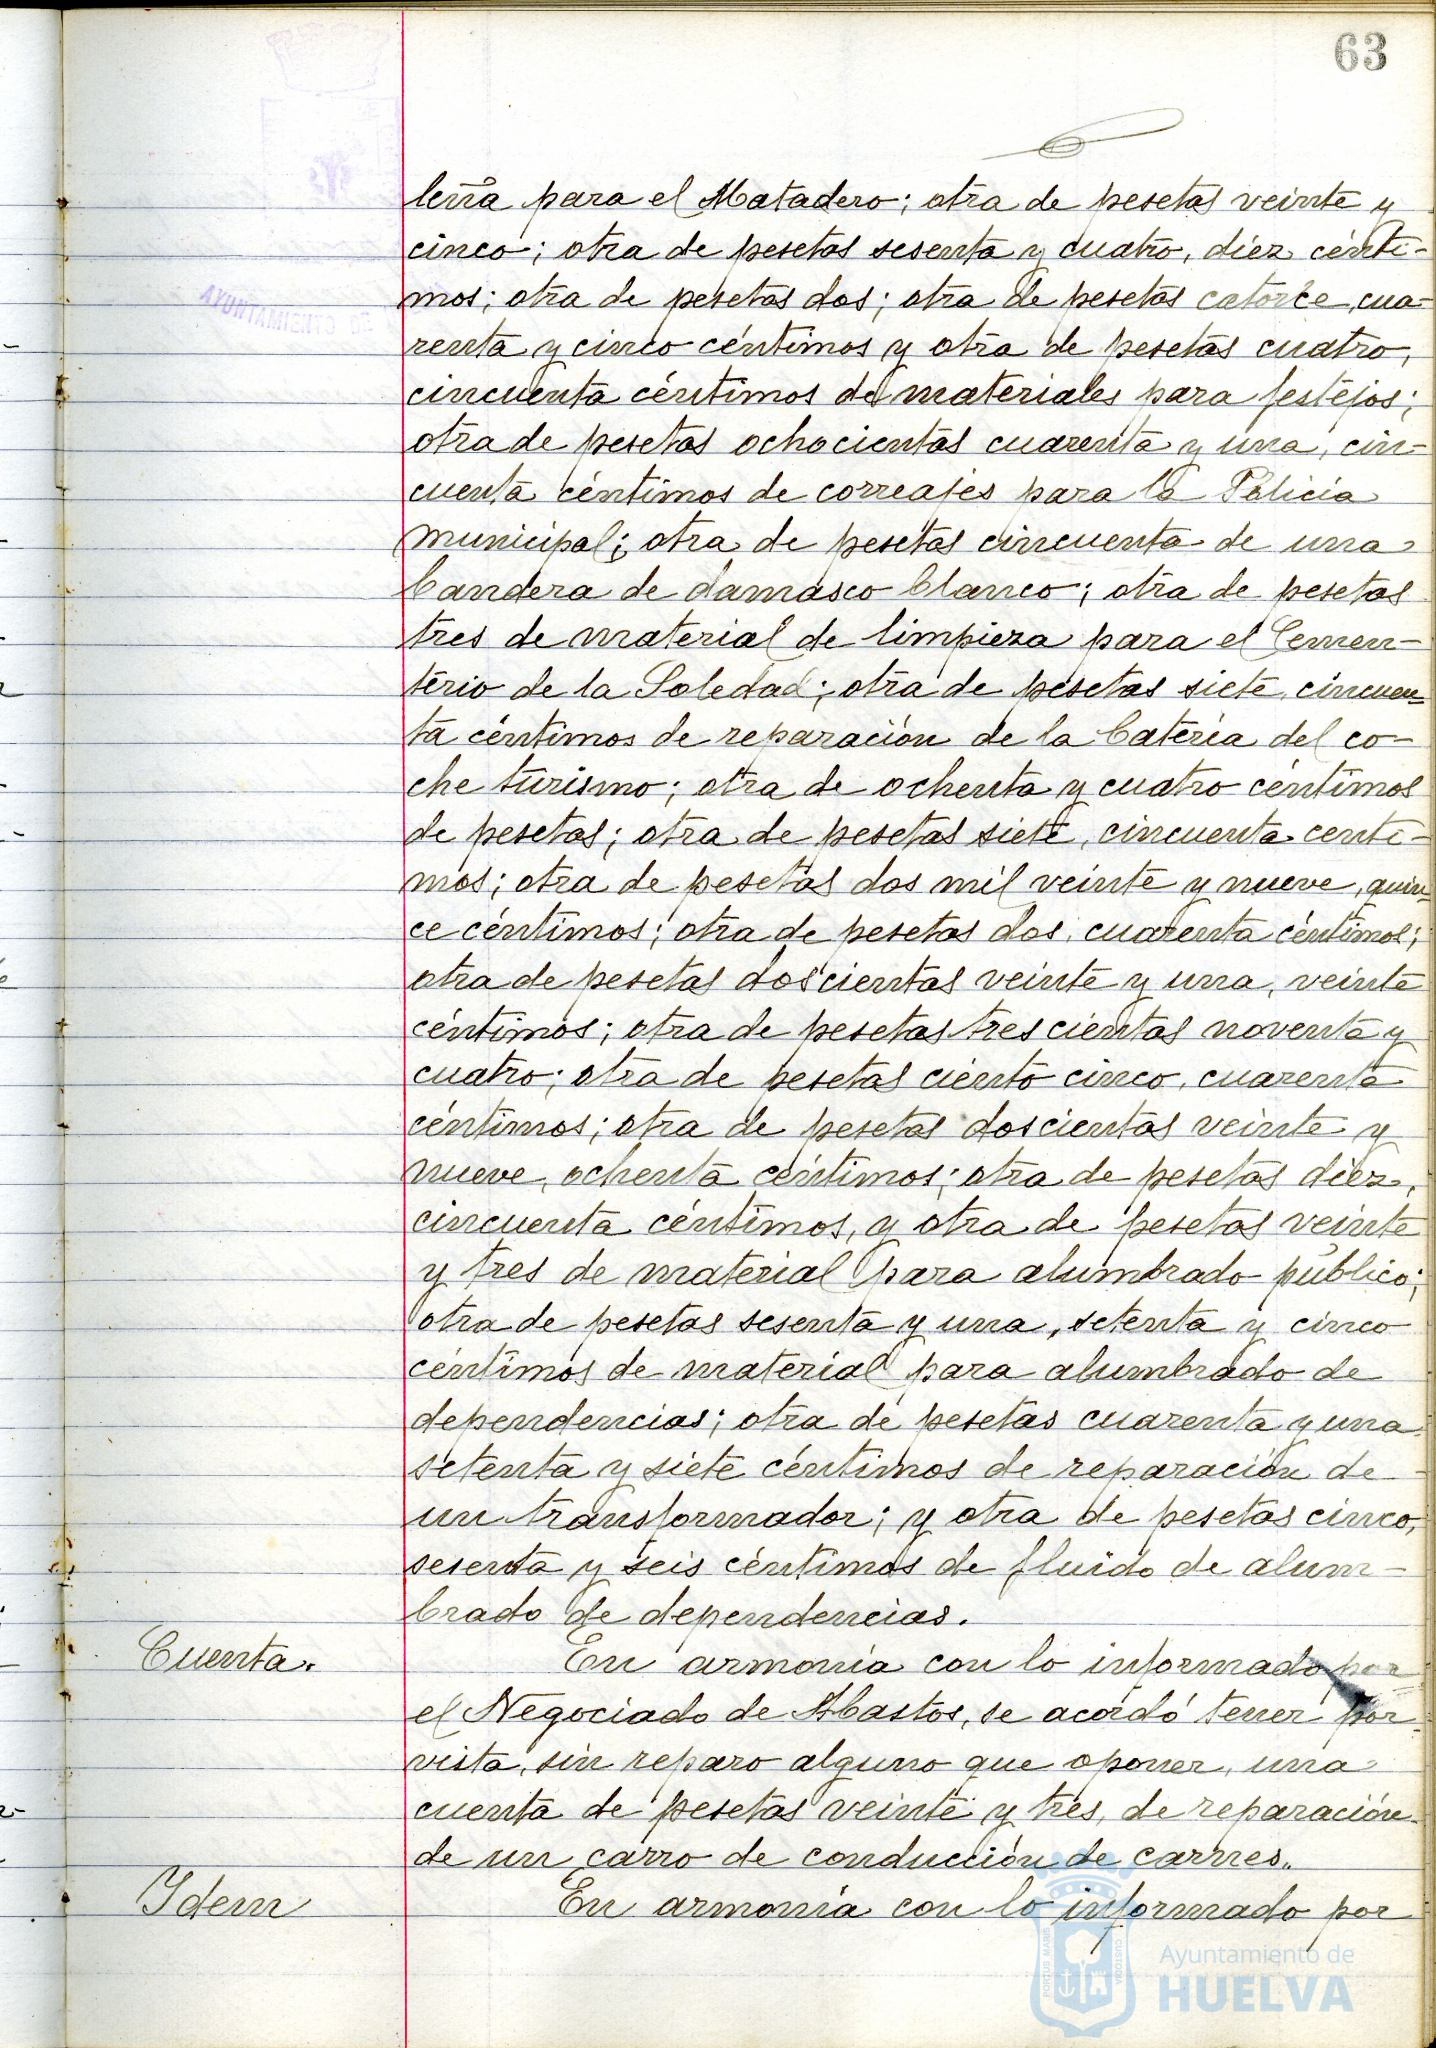 63
leña para el Matadero; otra de pesetas veinte y
cinco; otra de pesetas sesenta y cuatro, diez cénti-
mos; otra de pesetas dos; otra de pesetas catorce, cua-
renta y cinco céntimos y otra de pesetas cuatro,
cincuenta céntimos de materiales para festejos;
otra de pesetas ochocientas cuarenta y una, cin-
cuenta céntimos de correajes para la Policía
municipal; otra de pesetas cincuenta de una
bandera de damasco blanco; otra de pesetas
tres de material de limpieza para el Cemen-
terio de la Soledad; otra de pesetas siete, cincuen-
ta céntimos de reparación de la batería del co-
che turismo; otra de ochenta y cuatro céntimos
de pesetas; otra de pesetas siete, cincuenta cénti-
mos; otra de pesetas dos mil veinte y nueve, quin-
ce céntimos; otra de pesetas dos, cuarenta céntimos;
otra de pesetas doscientas veinte y una, veinte
céntimos; otra de pesetas trescientas noventa y
cuatro; otra de pesetas ciento cinco, cuarenta
céntimos; otra de pesetas doscientas veinte y
nueve, ochenta céntimos; otra de pesetas diez,
cincuenta céntimos, y otra de pesetas veinte
y tres de material para alumbrado público;
otra de pesetas sesenta y una, setenta y cinco
céntimos de material para alumbrado de
dependencias; otra de pesetas cuarenta y una
setenta y siete céntimos de reparación de
un transformador; y otra de pesetas cinco,
sesenta y seis céntimos de fluido de alum-
brado de dependencias.
Cuenta. En armonía con lo informado por
el Negociado de Abastos, se acordó tener por
vista, sin reparo alguno que oponer, una
cuenta de pesetas veinte y tres, de reparación
de un carro de conducción de carnes.
Idem En armonía con lo informado por
AYUNTAMIENTO DE
PORTUS MARIS
CUSTODIA
Ayuntamiento de
HUELVA